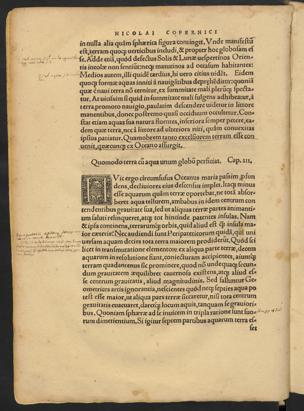 NICOLAI COPERNICI
in nulla alia quàm sphærica figura contingit. Vnde manifestũ
est, terram quoq; verticibus includi, & propter hoc globosam es
se. Adde etiā, quòd defectus Solis & Lunæ vespertinos Orien
tis incolæ non sentiunt: neq; matutinos ad occasum habitantes:
Medios autem, illi quidē tardius, hi vero citius vidēt. Eidem
quoq; formæ aquas inniti à nauigātibus deprehēditur: quoniã
quæ è naui terra nõ cernitur, ex summitate mali plerũq; specta-
tur. At vicissim si quid in summitate mali fulgens adhibeatur, à
terra promoto nauigio, paulatim descendere uidetur in littore
manentibus, donec postremo quasi occiduum occultetur. Con
stat etiam aquas sua natura fluentes, inferiora semper petere, ea
dem quæ terra, nec à littore ad ulteriora niti, quàm conuexitas
ipsius patiatur. Quamobrem tanto excelsiorem terram esse con
uenit, quæcunq; ex Oceano assurgit.
Quomodo terra cũ aqua unum globũ perficiat. Cap. III.
HVic ergo circumfusus Oceanus maria passim profun
dens, decliuiores eius descensus implet. Itaq; minus
esse aquarum quàm terræ oportebat, ne totã absor
beret aqua tellurem, ambabus in idem centrum con
tendentibus grauitate sua, sed ut aliquas terræ partes animanti-
um saluti relinqueret, atq; tot hincinde patentes insulas. Nam
& ipsa continens, terrarumq; orbis, quid aliud est q̃ insula ma
ior cæteris? Nec audiendi sunt Peripateticorum quidã, qui uni
uersam aquam decies tota terra maiorem prodiderũt. Quòd sci
licet in transmutatione elementorum ex aliqua parte terræ, decem
aquarum in resolutione fiant, coniecturam accipientes, aiuntq;
terram quadantenus sic prominere, quòd nõ undequaq; secun-
dum grauitatem æquilibret cauernosa existens, atq; aliud es-
se centrum grauitatis, aliud magnitudinis. Sed falluntur Ge-
ometricæ artis ignorantia, nescientes quòd neq; septies aqua po
test esse maior, ut aliqua pars terræ siccaretur, nisi tota centrum
grauitatis euacuaret, daretq; locum aquis, tanquam se grauiori-
bus. Quoniam sphæræ ad se inuicem in tripla ratione sunt suo-
rum dimetientium. Si igitur septem partibus aquarum terra es-
set